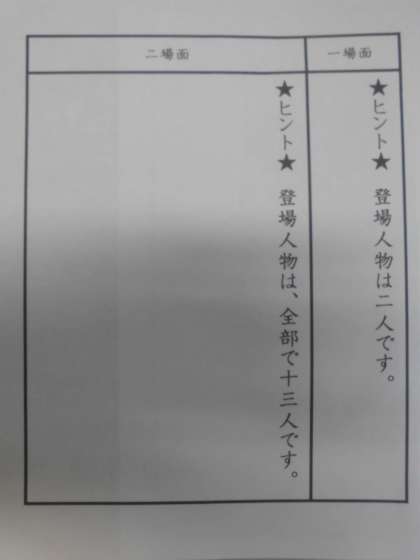 一場面
★ヒント★ 登場人物は二人です。
二場面
★ヒント★ 登場人物は、全部で十三人です。